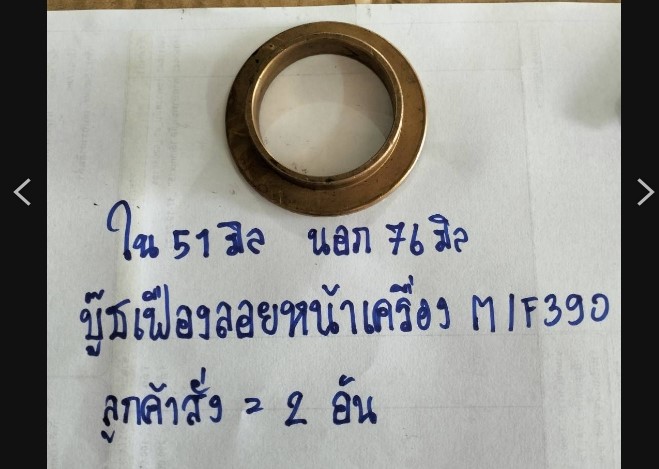 ใน 51 มิล นอก 76 มิล
บู๊ชเฟืองลอยหน้าเครื่อง M/F390
ลูกค้าสั่ง = 2 อัน